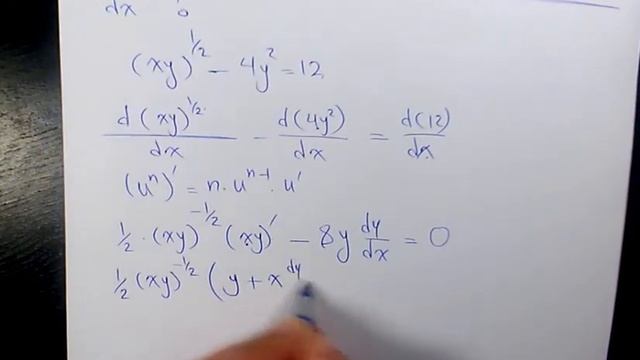 dx
(xy)^1/2 - 4y^2 = 12
d(xy)^1/2/dx - d(4y^2)/dx = d(12)/dx
(u^n)' = n·u^n-1·u'
1/2·(xy)^-1/2 (xy)' - 8y dy/dx = 0
1/2(xy)^-1/2 (y + x dy